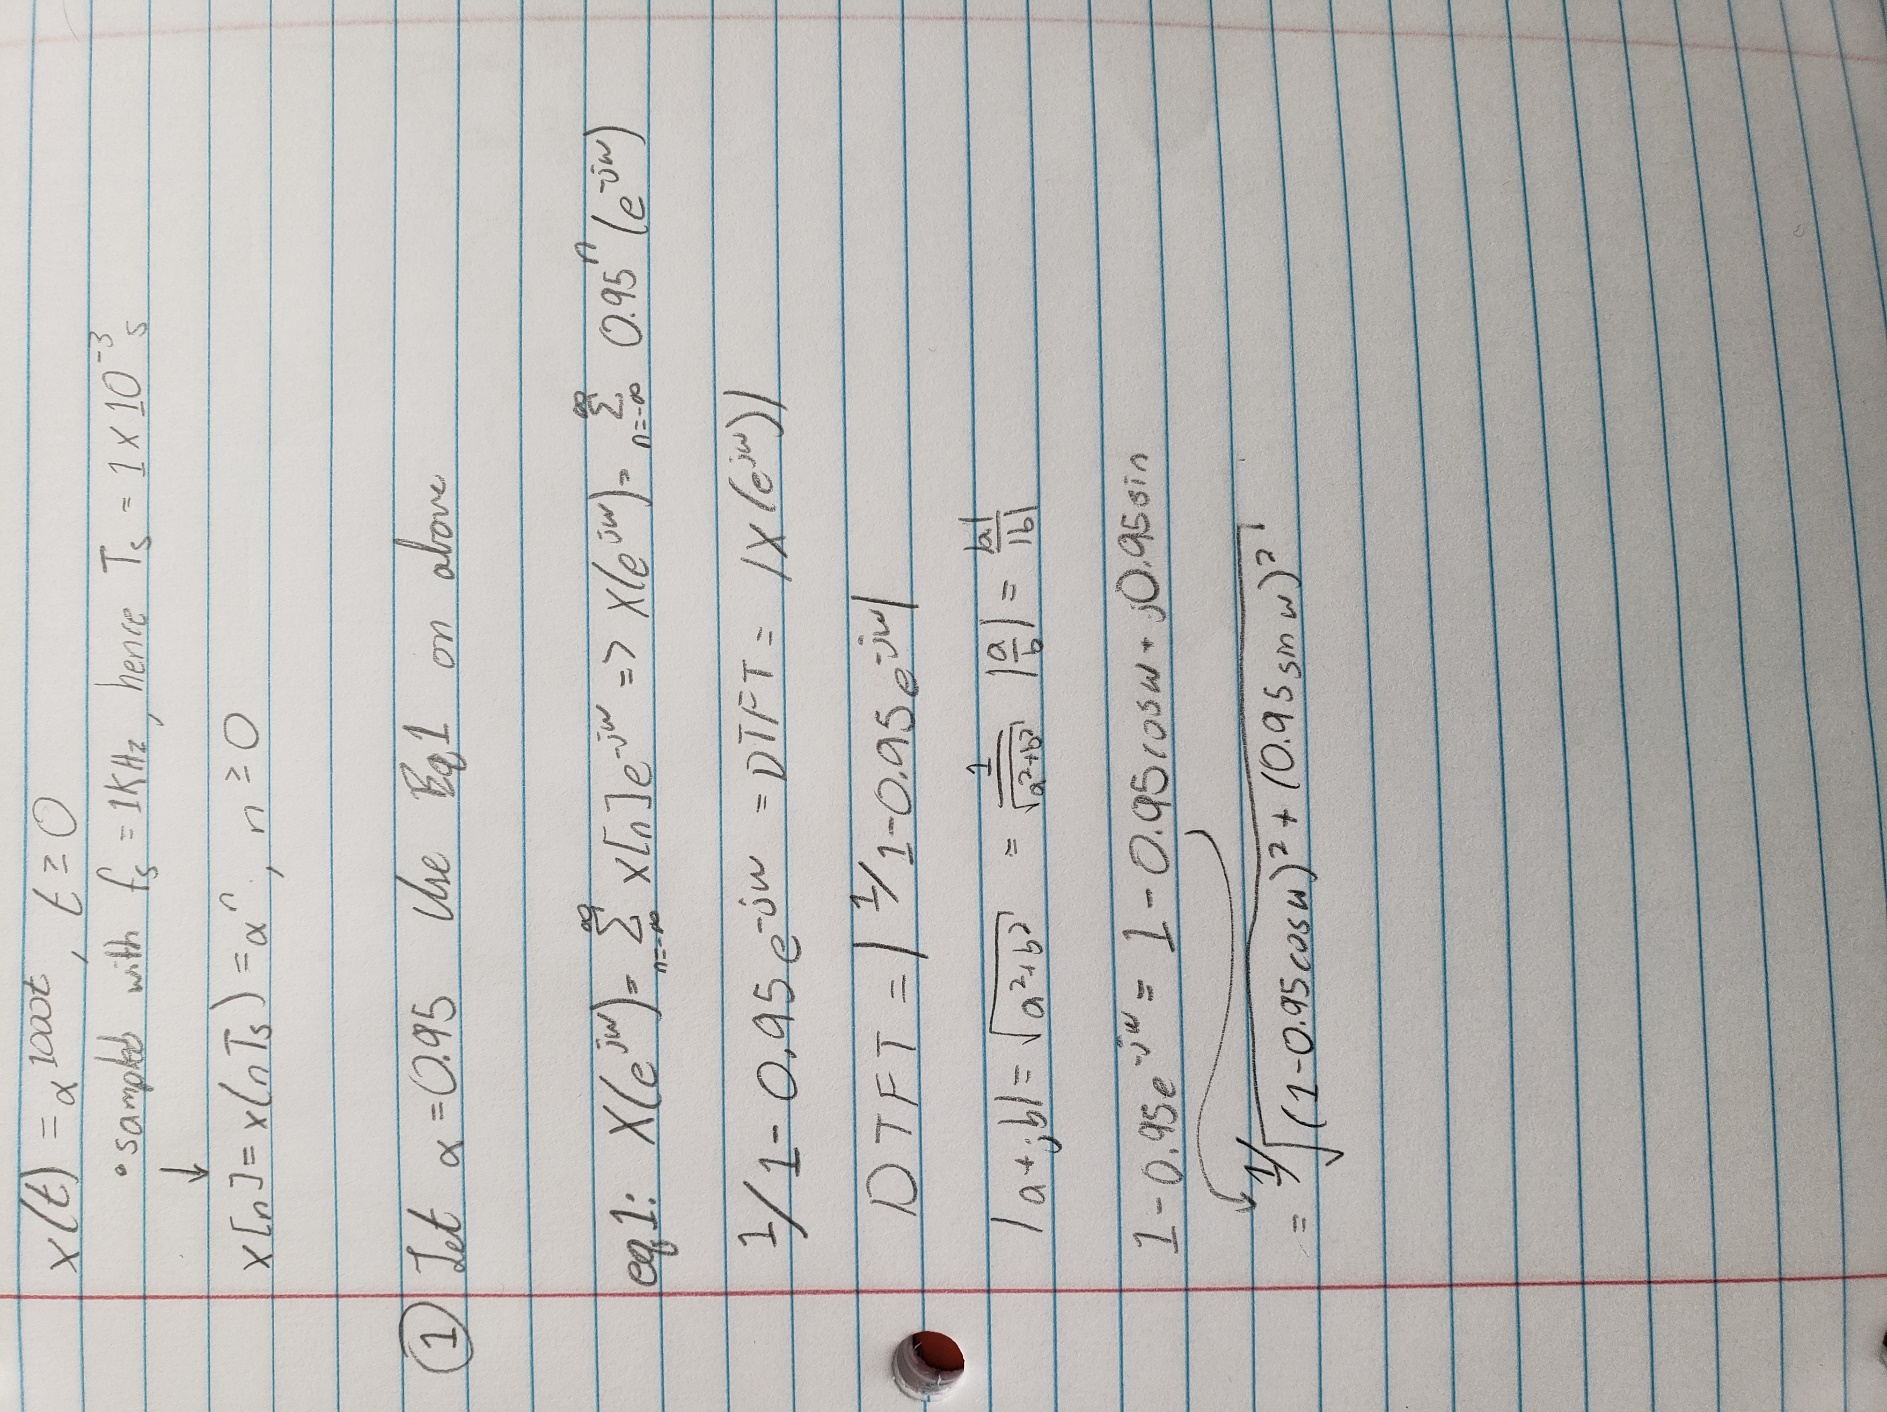 x(t) = α^1000t, t ≥ 0
• sampled with fs = 1KHz, hence Ts = 1 x 10^-3 s
↓
x[n] = x(nTs) = α^n, n ≥ 0
① Let α = 0.95 Use Eq1 on above
eq1: X(e^jw) = ∑_{n=-∞}^{∞} x[n]e^-jw => X(e^jw) = ∑_{n=-∞}^{∞} 0.95^n (e^-jw)
1/1-0.95e^-jw = DTFT = |X(e^jw)|
DTFT = |1/1-0.95e^-jw|
|a+jb| = √(a²+b²) = 1/√(a²+b²) |a/b| = |a|/|b|
1-0.95e^-jw = 1-0.95cosw + j0.95sin
= 1/√((1-0.95cosw)² + (0.95sinw)²)